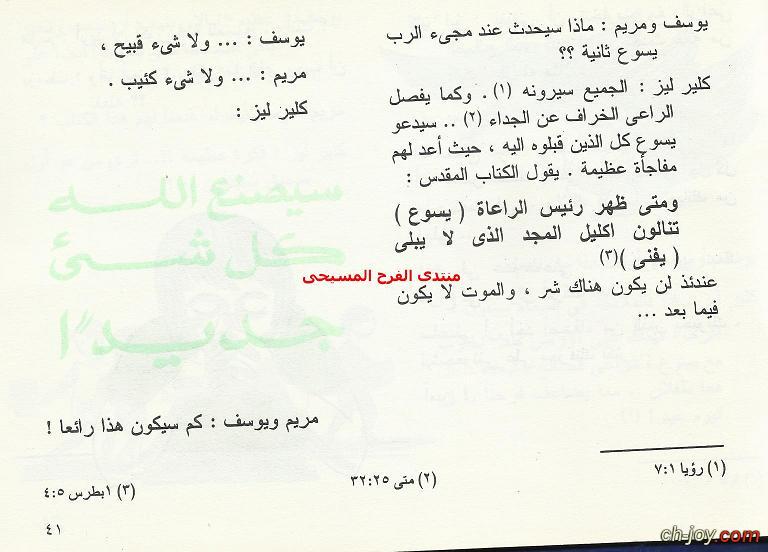 يوسف ومريم : ماذا سيحدث عند مجىء الرب
يسوع ثانية ؟؟
كلير ليز : الجميع سيرونه (١) . وكما يفصل
الراعى الخراف عن الجداء (٢) .. سيدعو
يسوع كل الذين قبلوه اليه ، حيث أعد لهم
مفاجأة عظيمة . يقول الكتاب المقدس :
ومتى ظهر رئيس الراعاة ( يسوع )
تنالون اكليل المجد الذى لا يبلى
( يفنى )(٣)
عندئذ لن يكون هناك شر ، والموت لا يكون
فيما بعد ...
يوسف : ... ولا شىء قبيح ،
مريم : ... ولا شىء كئيب .
كلير ليز :
سيصنع الله
كل شئ
جديدًا
منتدى الفرح المسيحى
مريم ويوسف : كم سيكون هذا رائعا !
(١) رؤيا ٧:١
(٢) متى ٣٢:٢٥
(٣) ١بطرس ٤:٥
٤١
ch-joy.com